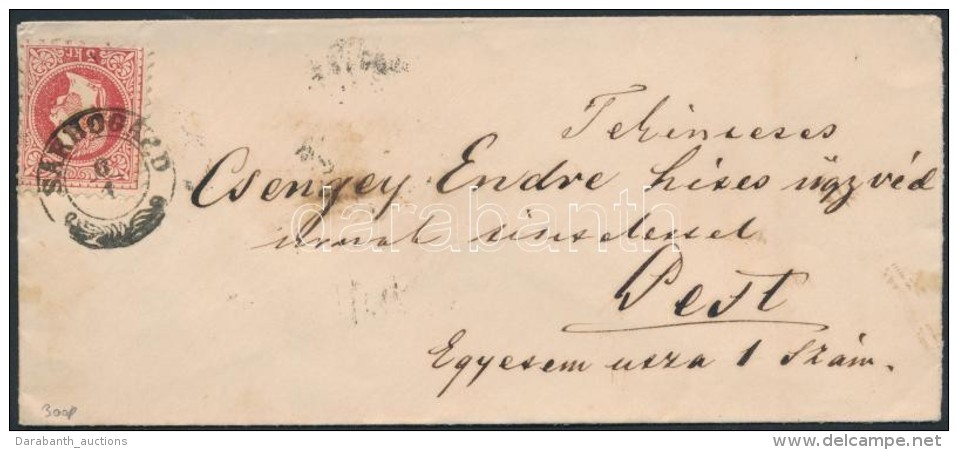 3 Kr
SÁRBOGÁRD
6
1
Tekintetes
Csengey Endre hites ügyvéd
urnak tisztelettel
Pest
Egyetem utza 1 Szám.
300P
darabanth
Darabanth_auctions
delcampe.net